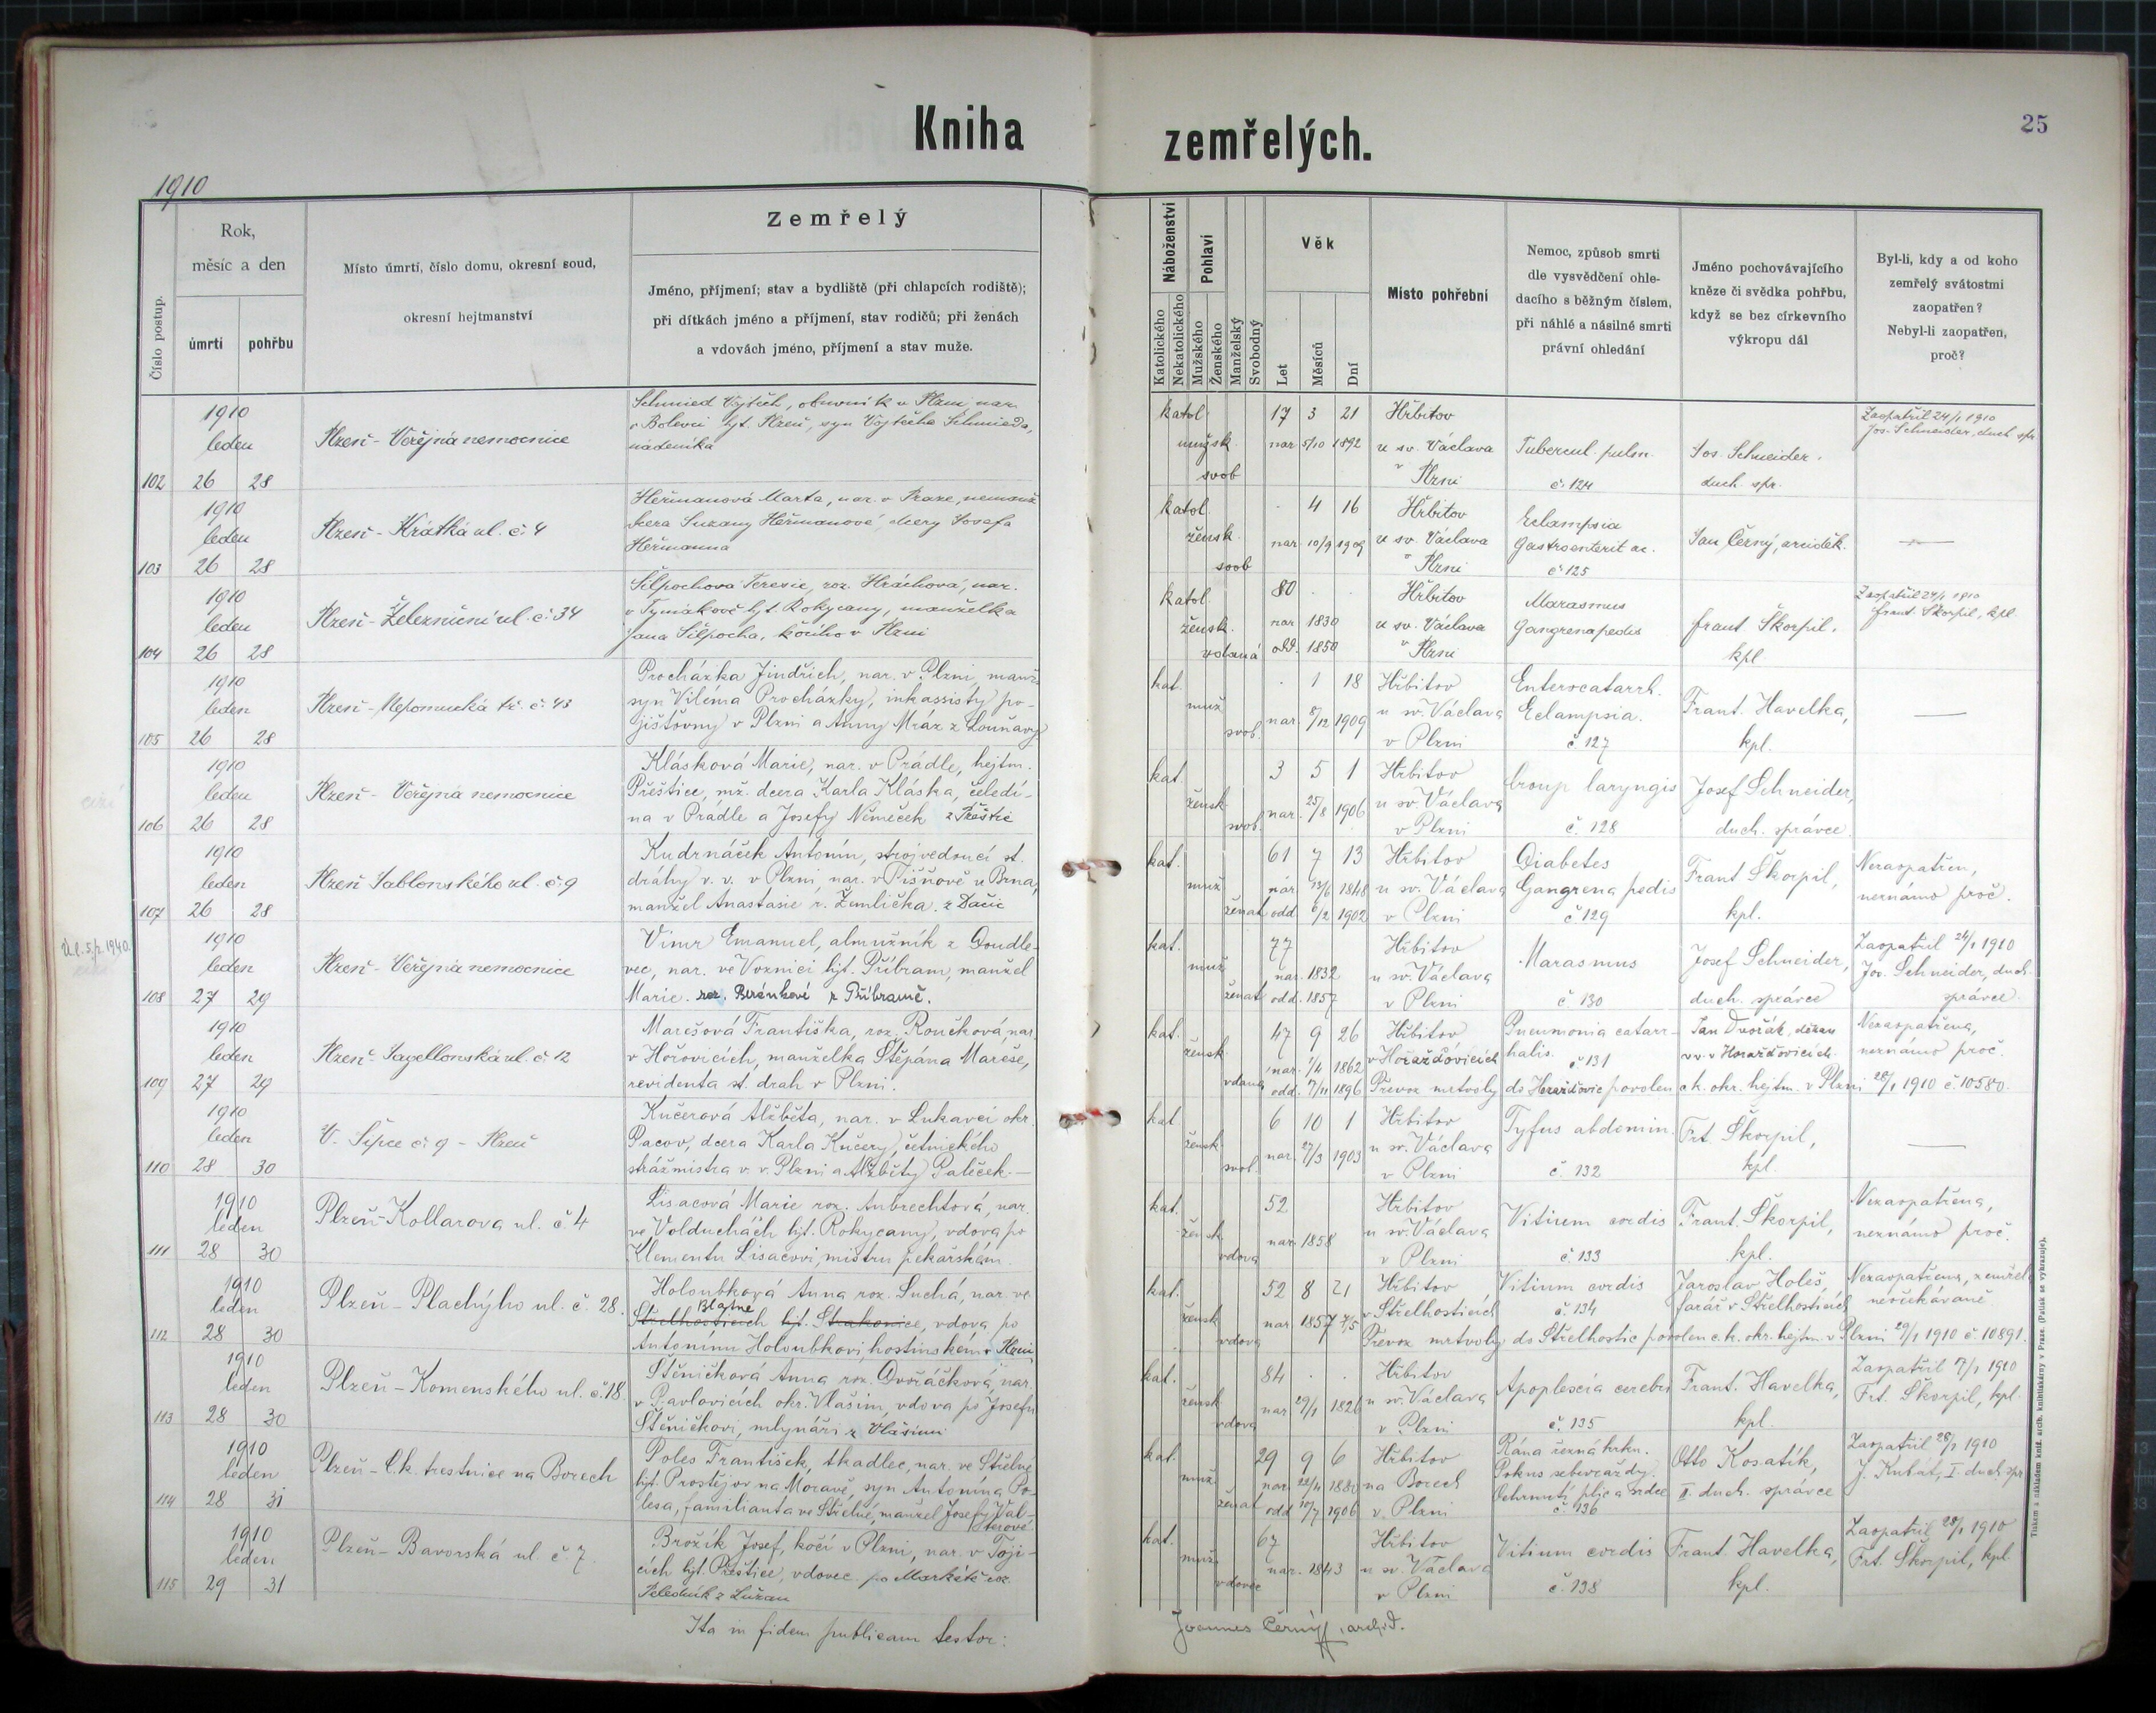 Kniha zemřelých.
25
1910
Číslo postup.
Rok,
měsíc a den
úmrtí
pohřbu
Místo úmrtí, číslo domu, okresní soud,
okresní hejtmanství
Zemřelý
Jméno, příjmení; stav a bydliště (při chlapcích rodiště);
při dítkách jméno a příjmení, stav rodičů; při ženách
a vdovách jméno, příjmení a stav muže.
Náboženství
Katolického
Nekatolického
Pohlaví
Mužského
Ženského
Manželský
Svobodný
Věk
Let
Měsíců
Dní
Místo pohřební
Nemoc, způsob smrti
dle vysvědčení ohle-
dacího s běžným číslem,
při náhlé a násilné smrti
právní ohledání
Jméno pochovávajícího
kněze či svědka pohřbu,
když se bez církevního
výkropu dál
Byl-li, kdy a od koho
zemřelý svátostmi
zaopatřen?
Nebyl-li zaopatřen,
proč?
102
1910
leden
26 28
Plzeň - Veřejná nemocnice
Schmied Vojtěch, obuvník v Plzni nar.
v Bolevci hjt. Plzeň, syn Vojtěcha Schmieda,
nádeníka
katol
mužsk.
svob
17 3 21
nar 5/10 1892
Hřbitov
u sv. Václava
v Plzni
Tubercul. pulm.
č. 124
Jos. Schneider.
duch. spr.
Zaopatřil 24/1 1910
Jos. Schneider, duch spr
103
1910
leden
26 28
Plzeň - Krátká ul. č. 4
Heřmanová Marta, nar. v Praze, nemanž
dcera Suzany Heřmanové, dcery Josefa
Heřmanna
katol.
žensk.
svob
4 16
nar 10/9 1909
Hřbitov
u sv. Václava
v Plzni
Eclampsia
Gastroenterit ac.
č 125
Jan Černý, arciděk.
—
104
1910
leden
26 28
Plzeň - Železniční ul. č. 34
Šilpochová Terezie, roz. Hráchová, nar.
v Tymákově hjt. Rokycany, manželka
Jana Šilpocha, kočího v Plzni
katol.
žensk.
vdaná
80
nar 1830
odd. 1850
Hřbitov
u sv. Václava
v Plzni
Marasmus
Gangrena pedis
Frant. Škorpil.
kpl.
Zaopatřil 24/1 1910
Frant. Škorpil, kpl
105
1910
leden
26 28
Plzeň - Nepomucká tř. č. 43
Procházka Jindřich, nar. v Plzni, manž.
syn Viléma Procházky, inkassisty po-
jišťovny v Plzni a Anny Mráz z
kat.
muž
svob.
1 18
nar. 8/12 1909
Hřbitov
u sv. Václava
v Plzni
Enterocatarrh.
Eclampsia.
č. 127
Frant. Havelka,
kpl.
—
106
1910
leden
26 28
Plzeň - Veřejná nemocnice
Klásková Marie, nar. v Prádle, hejtm.
Přeštice, mž. dcera Karla Kláska, čeledí-
na v Prádle a Josefy Němeček z Přeštic
kat
žensk.
svob.
3 5 1
nar. 25/8 1906
Hřbitov
u sv. Václava
v Plzni
Croup laryngis
č. 128
Josef Schneider,
duch. správce
107
1910
leden
26 28
Plzeň Jablonského ul. č. 9
Kudrnáček Antonín, strojvedoucí st.
dráhy v. v. v Plzni, nar. v Pišňově u Brna,
manžel Anastasie r. Žemlička. z Dačic
kat.
muž
ženat
61 7 13
nar. 13/6 1848
odd. 6/2 1902
Hřbitov
u sv. Václava
v Plzni
Diabetes
Gangrena pedis
č 129
Frant Škorpil,
kpl.
Nezaopatřen,
neznámo proč.
108
1910
leden
27 29
Plzeň - Veřejná nemocnice
Vimr Emanuel, almužník z Doudle-
vec, nar. ve Voznici hjt. Příbram, manžel
Marie. roz. Beránkové z Příbramě.
kat.
muž
ženat
77
nar. 1832
odd. 1857
Hřbitov
u sv. Václava
v Plzni
Marasmus
č. 130
Josef Schneider,
duch. správce
Zaopatřil 24/1 1910
Jos. Schneider, duch.
správce.
109
1910
leden
27 29
Plzeň - Jagellonská ul. č. 12
Marešová Františka, roz. Roučková, nar.
v Hořovicích, manželka Štěpána Mareše,
revidenta st. drah v Plzni.
kat.
žensk
vdaná
47 9 26
nar. 1/4 1862
odd. 7/11 1896
Hřbitov
v Horažďovicích
Pneumonia catarr-
halis.
č 131
Jan Dvořák, děkan
v. v. v Horažďovicích.
Nezaopatřena,
neznámo proč.
Převoz mrtvoly do Horažďovic povolen c. k. okr. hejtm. v Plzni 28/1 1910 č. 10580.
110
1910
leden
28 30
V. Šipce č. 9 - Plzeň
Kučerová Alžběta, nar. v Lukavci okr.
Pacov, dcera Karla Kučery, četnického
strážmistra v. v. Plzni a Alžběty Paleček.
kat.
žensk.
svob
6 10 1
nar. 27/3 1903
Hřbitov
u sv. Václava
v Plzni
Tyfus abdomin.
č. 132
Frt. Škorpil,
kpl.
—
111
1910
leden
28 30
Plzeň - Kollarova ul. č. 4
Lisacová Marie roz. Aubrechtová, nar.
ve Volduchách hjt. Rokycany, vdova po
Klementu Lisacovi, mistru pekařském.
kat.
žensk
vdova
52
nar. 1858
Hřbitov
u sv. Václava
v Plzni
Vitium cordis
č. 133
Frant. Škorpil,
kpl.
Nezaopatřena,
neznámo proč.
112
1910
leden
28 30
Plzeň - Plachýho ul. č. 28.
Holoubková Anna roz. Suchá, nar. ve
Blatné
Střelhosticích hjt. Strakonice, vdova po
Antonínu Holoubkovi, hostinském v Plzni
kat.
žensk
vdova
52 8 21
nar. 1857 7/5
Hřbitov
v Střelhosticích
Vitium cordis
č. 134
Jaroslav Holeš,
farář v Střelhosticích
Nezaopatřena, zemřela
neočekávaně
Převoz mrtvoly do Střelhostic povolen c. k. okr. hejtm. v Plzni 29/1 1910 č 10891.
113
1910
leden
28 30
Plzeň - Komenského ul. č. 18
Štěničková Anna roz. Dvořáčková, nar.
v Pavlovicích okr. Vlašim, vdova po Josefu
Štěničkovi, mlynáři z Vlašimi
kat.
žensk
vdova
84
nar 29/1 1826
Hřbitov
u sv. Václava
v Plzni
Apoplexia cerebri
č. 135
Frant. Havelka,
kpl.
Zaopatřil 7/1 1910
Frt. Škorpil, kpl.
114
1910
leden
28 31
Plzeň - C. k. trestnice na Borech
Poles František, tkadlec, nar. ve Střelné
hjt. Prostějov na Moravě, syn Antonína Po-
lesa, familianta ve Střelné, manžel Josefy Val-
terové
kat.
muž.
ženat
29 9 6
nar. 22/4 1880
odd. 10/7 1906
Hřbitov
na Borech
v Plzni
Rána řezná krku.
Pokus sebevraždy.
Ochrnutí plic a srdce
č. 136
Otto Kosatík,
II. duch. správce
Zaopatřil 28/1 1910
J. Kubát, I. duch. spr
115
1910
leden
29 31
Plzeň - Bavorská ul. č. 7.
Brožík Josef, kočí v Plzni, nar. v Toji-
cích hjt. Přeštice, vdovec po Markétě roz.
z Lužan
kat.
muž.
vdovec
67
nar. 1843
Hřbitov
u sv. Václava
v Plzni
Vitium cordis
č. 138
Frant. Havelka,
kpl.
Zaopatřil 28/1 1910
Frt. Škorpil, kpl.
Ita in fidem publicam testor:
Joannes Černý, archid.